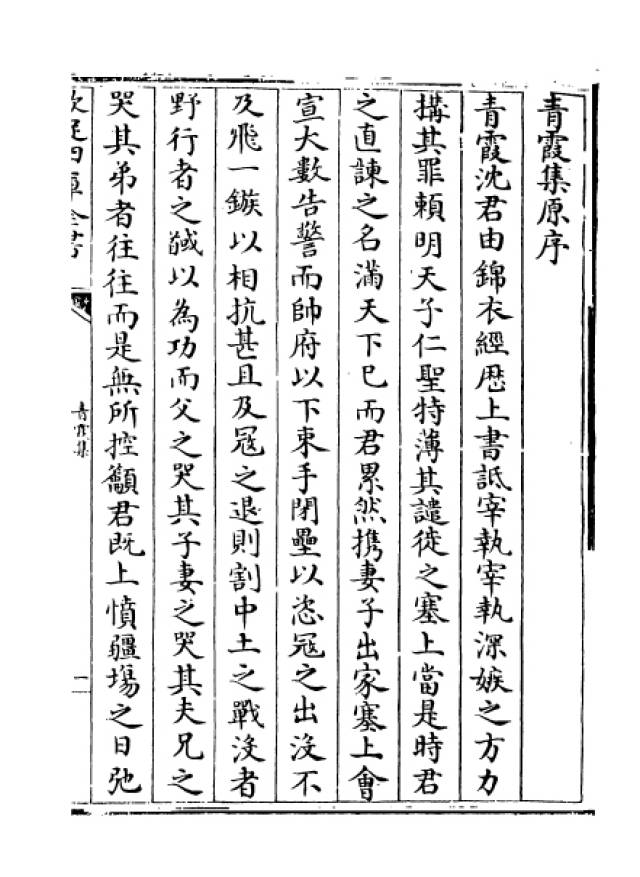 青霞集原序
青霞沈君由錦衣經歴上書詆宰執宰執深嫉之方力
搆其罪頼明天子仁聖特薄其譴徙之塞上當是時君
之直諫之名滿天下已而君累然携妻子出家塞上會
宣大數告警而帥府以下束手閉壘以恣冦之出没不
及飛一鏃以相抗甚且及冦之退則割中土之戰没者
野行者之馘以為功而父之哭其子妻之哭其夫兄之
哭其弟者往往而是無所控籲君既上憤疆埸之日弛
欽定四庫全書
青霞集
二